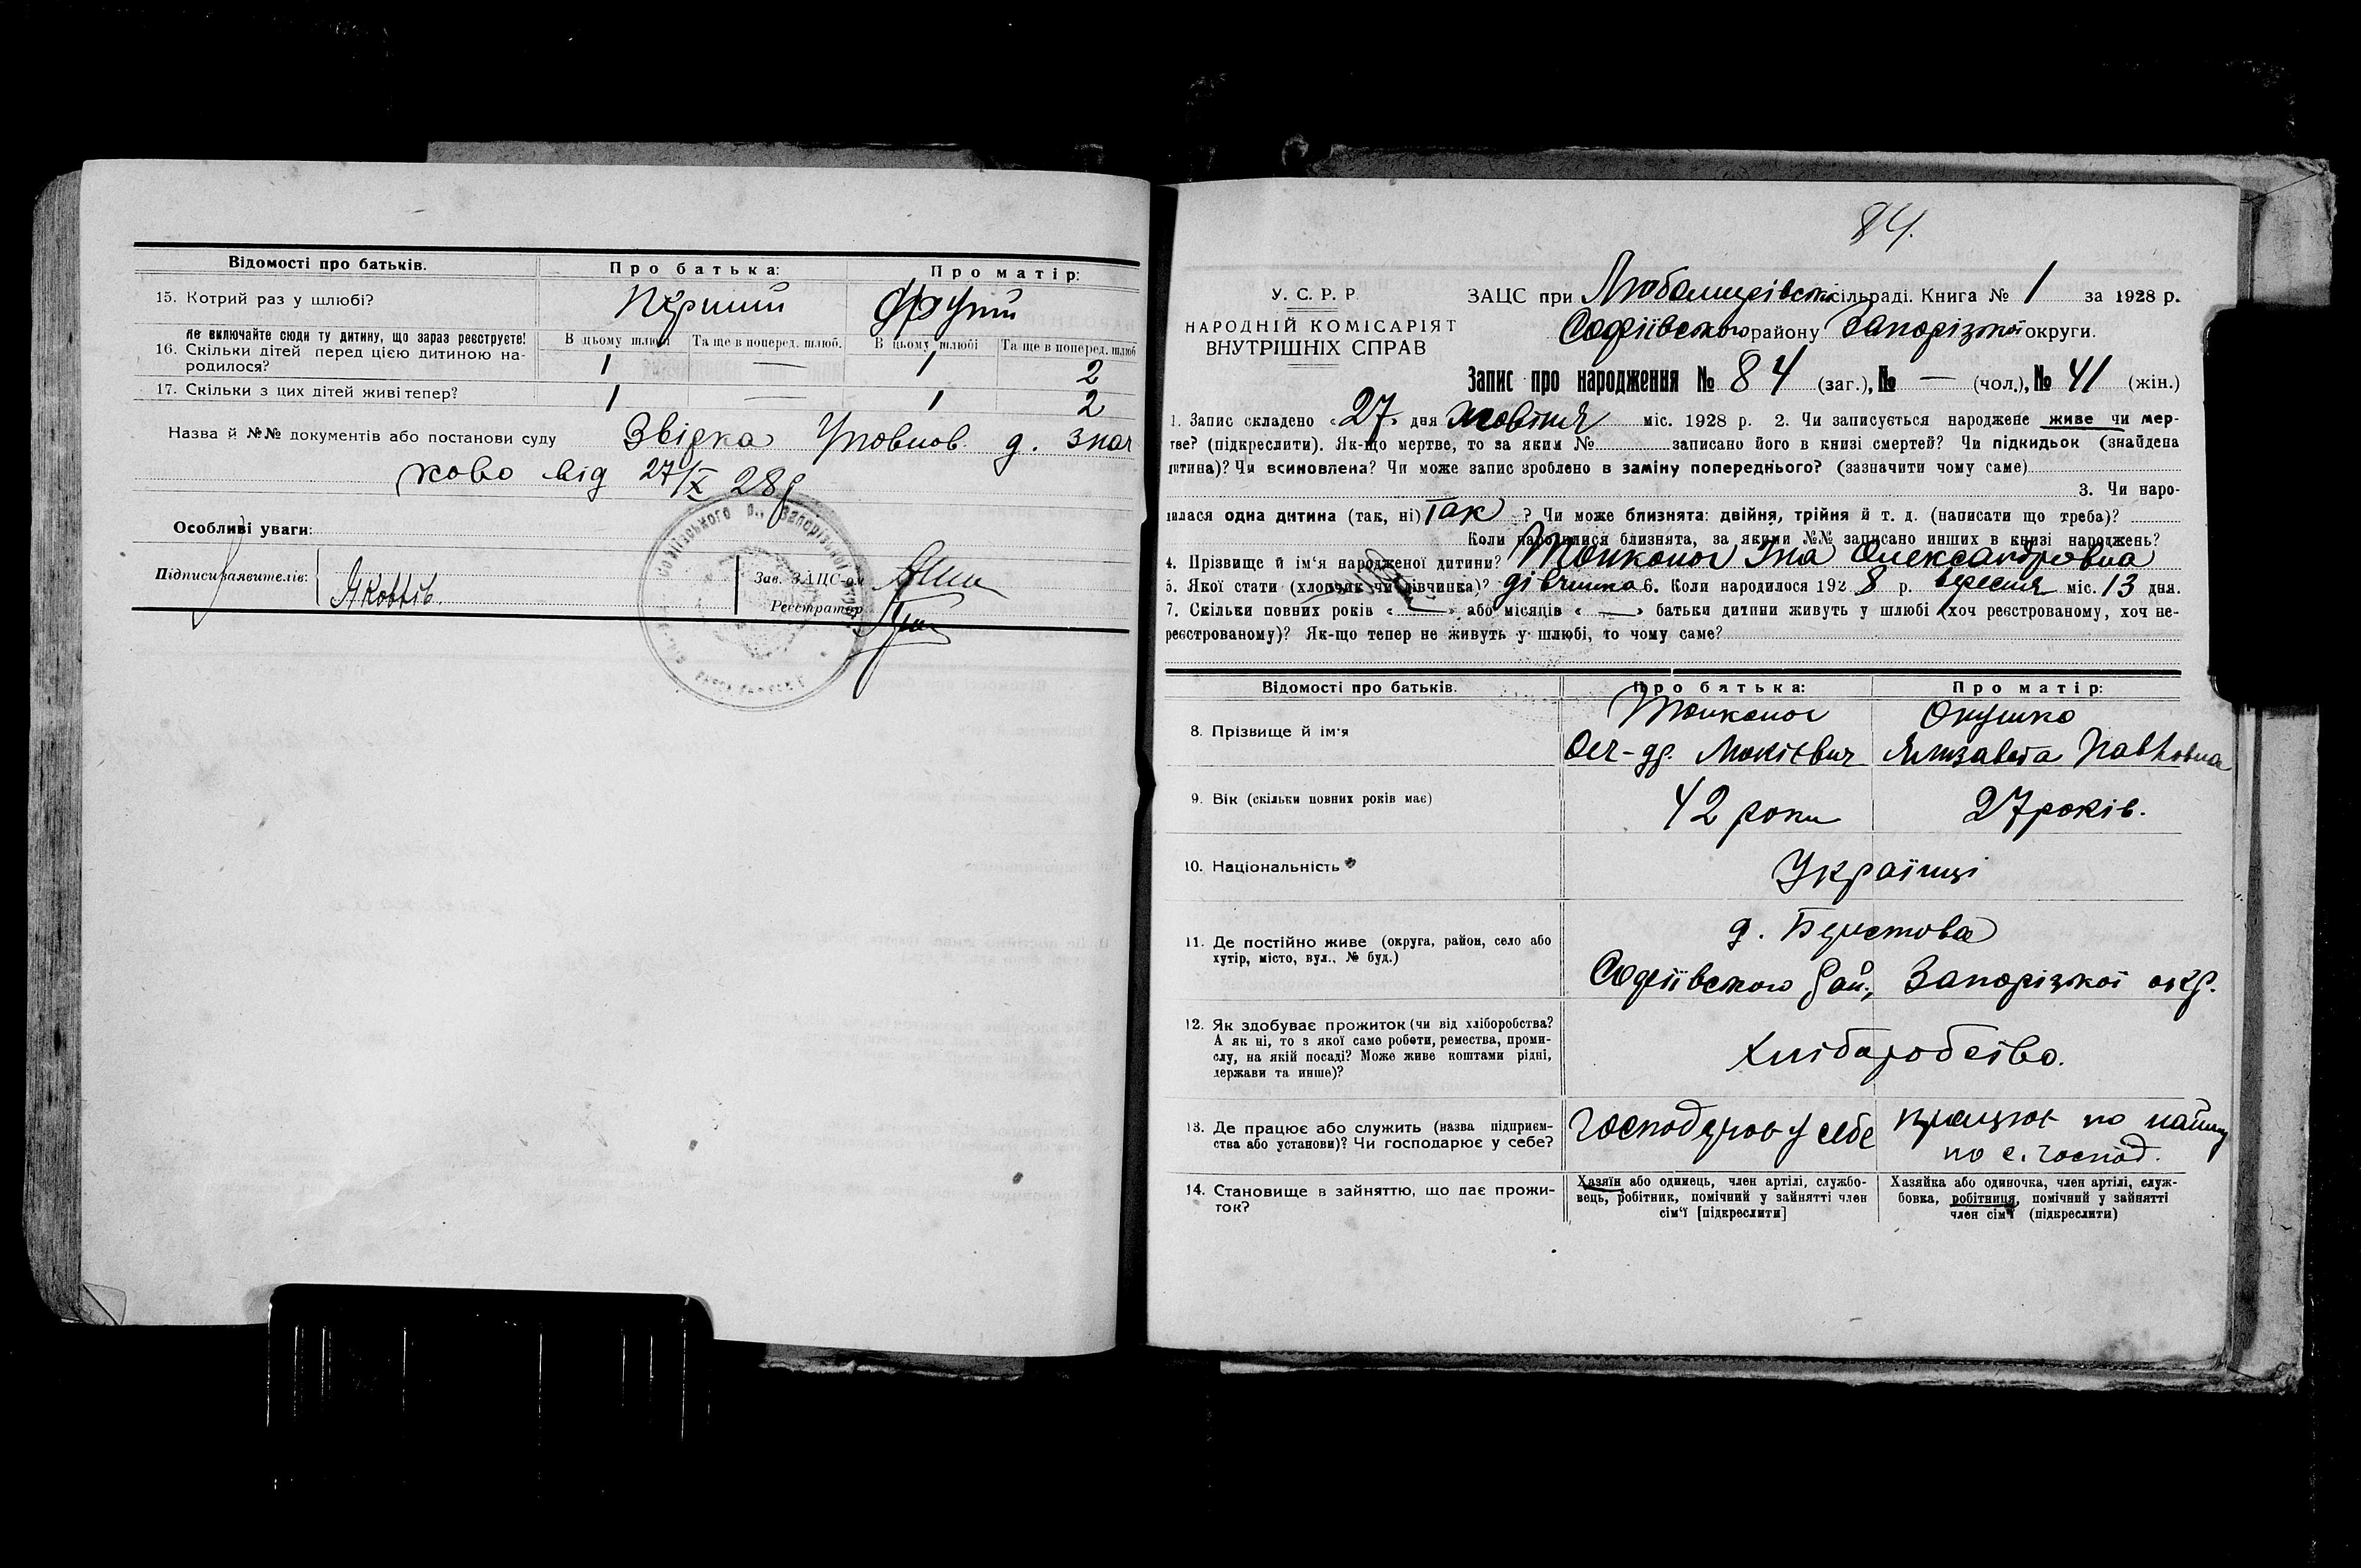 Відомості про батьків. Про батька: Про матір:
15. Котрий раз у шлюбі? Перший Другий
Не включайте сюди ту дитину, що зараз реєструєте! В цьому шлюбі Та ще в поперед. шлюб. В цьому шлюбі Та ще в поперед. шлюб
16. Скільки дітей перед цією дитиною на-
родилося? 1 — 1 2
17. Скільки з цих дітей живі тепер? 1 — 1 2
Назва й №№ документів або постанови суду Звірка Уповнов. д. Знач
ково від 27/X 28р
Особливі уваги:
Підписи заявителів: Яковлів. Зав. ЗАЦС-ом
Реєстратор
84.
У. С. Р. Р.
НАРОДНІЙ КОМІСАРІЯТ
ВНУТРІШНІХ СПРАВ
ЗАЦС при Любомирівськ сільраді. Книга № 1 за 1928 р.
Софіївського району Запорізької округи.
Запис про народження № 84 (заг.), № — (чол.), № 41 (жін.)
1. Запис складено «27» дня жовтня міс. 1928 р. 2. Чи записується народжене живе чи мер-
тве? (підкреслити). Як-що мертве, то за яким № записано його в книзі смертей? Чи підкидьок (знайдена
дитина)? Чи всиновлена? Чи може запис зроблено в заміну попереднього? (зазначити чому саме)
3. Чи наро-
дилася одна дитина (так, ні) Так ? Чи може близнята: двійня, трійня й т. д. (написати що треба)?
Коли народилися близнята, за якими №№ записано инших в книзі народжень?
4. Прізвище й ім'я народженої дитини? Тонконог Іна Олександровна
5. Якої стати (хлопчик чи дівчинка)? дівчинка 6. Коли народилося 1928 р. вересня міс. 13 дня.
7. Скільки повних років «—» або місяців «—» батьки дитини живуть у шлюбі (хоч реєстрованому, хоч не-
реєстрованому)? Як-що тепер не живуть у шлюбі, то чому саме?
Відомості про батьків. Про батька: Про матір:
8. Прізвище й ім'я Тонконог Онушко
Ол-др. Мокієвич Єлизавета Павловна
9. Вік (скільки повних років має) 42 роки 27 років.
10. Національність Українці
11. Де постійно живе (округа, район, село або
хутір, місто, вул., № буд.) д. Берестова
Софіївського рай., Запорізкої окр.
12. Як здобуває прожиток (чи від хліборобства?
А як ні, то з якої саме роботи, ремества, проми-
слу, на якій посаді? Може живе коштами рідні,
держави та инше)? Хліборобство.
13. Де працює або служить (назва підприєм-
ства або установи)? Чи господарює у себе? господарює у себе працює по найму
по с. господ.
14. Становище в зайняттю, що дає прожи-
ток? Хазяїн або одинець, член артілі, службо-
вець, робітник, помічний у зайнятті член
сім'ї [підкреслити]
Хазяйка або одиночка, член артілі, служ-
бовка, робітниця, помічний у зайнятті
член сім'ї (підкреслити)